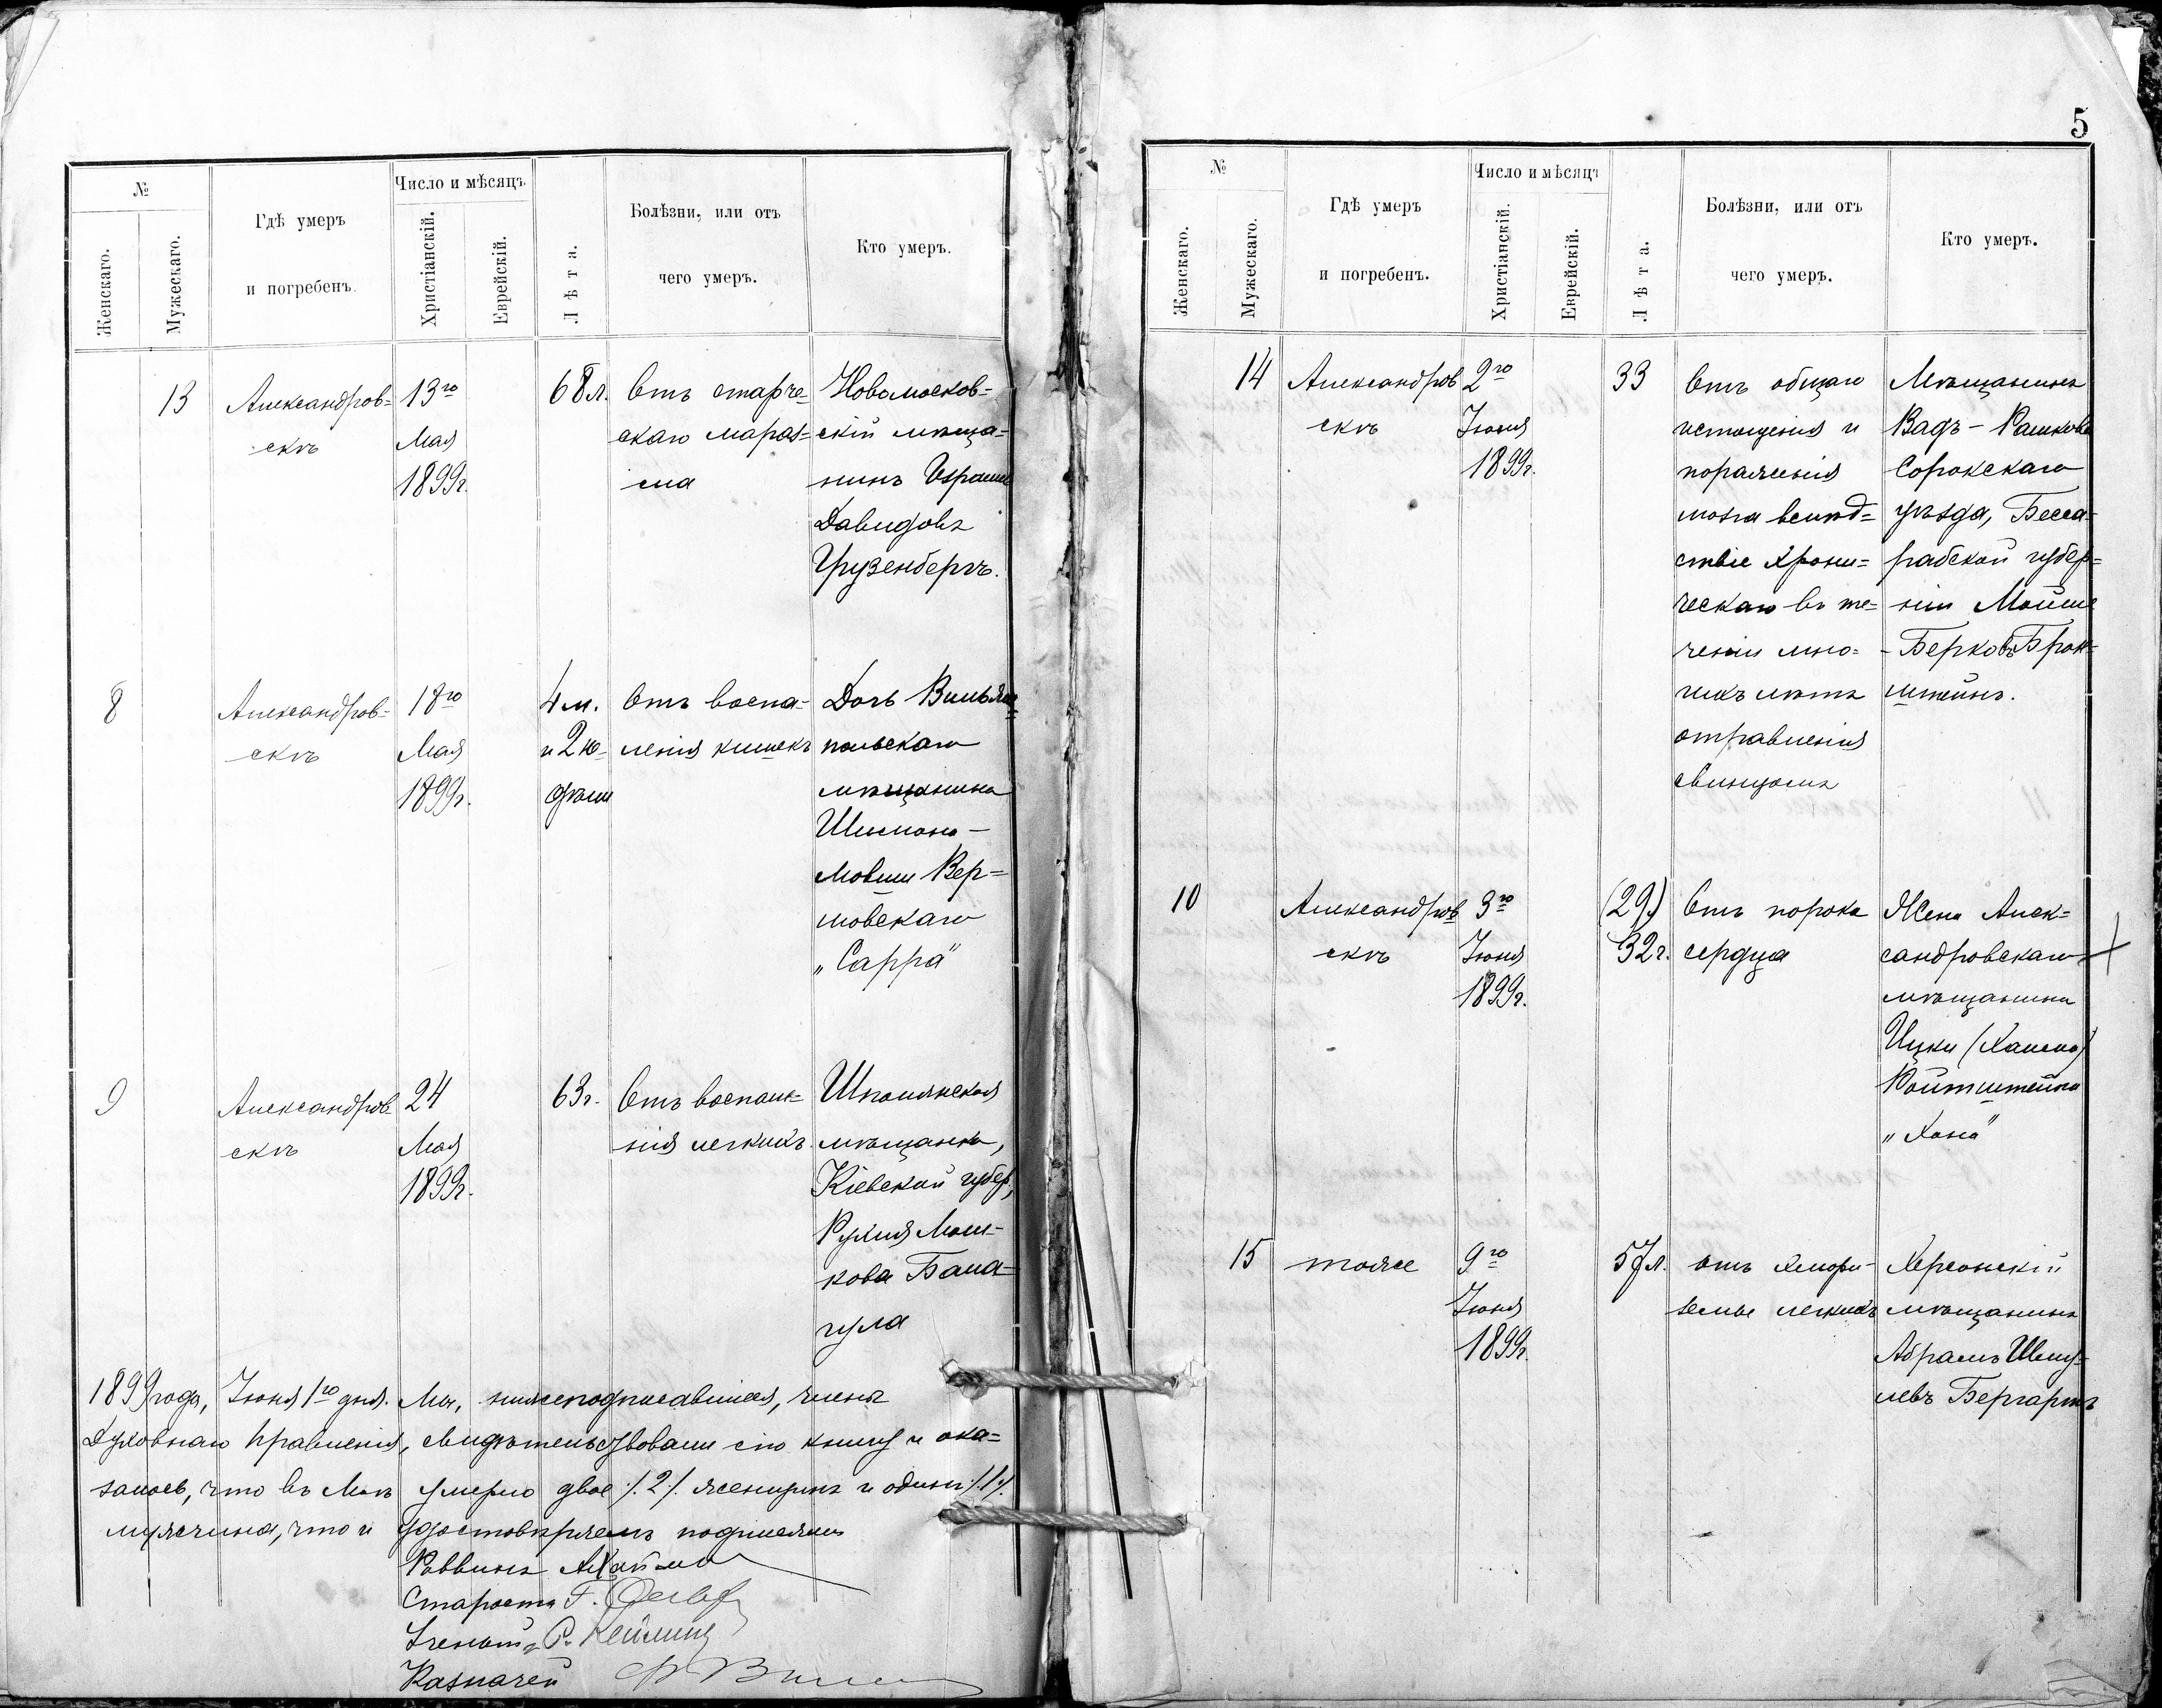 №
Женскаго.
Мужескаго.
Гдѣ умеръ
и погребенъ.
Число и мѣсяцъ.
Христіанскій.
Еврейскій.
Лѣта.
Болѣзни, или отъ
чего умеръ.
Кто умеръ.
13
Александров=
скъ
13го
Мая
1899г.
68л.
Отъ старче-
скаго мараз=
ма
Новомосков=
скій мѣща=
нинъ
Давидовъ
Грузенбергъ.
8
Александров=
скъ
18го
Мая
1899г.
4 м.
и 2 не-
дѣли
Отъ воспа-
ленія кишекъ
Дочь
польскаго
мѣщанина
Шимона-
Мовши Вер=
мовскаго
„Сарра"
9
Александров
скъ
24
Мая
1899г.
63г.
Отъ воспале-
нія легкихъ.
Шполянская
мѣщанка,
Кіевской губер.,
Рухля Мош-
кова Бала-
гула
1899 года, Іюня 1го дня. Мы, нижеподписавшіеся, члены
Духовнаго Правленія, свидѣтельствовали сію книгу и ока=
залось, что въ Маѣ умерло двое /.2/. женщинъ и одинъ /.1/.
мужчина, что и удостовѣряемъ подписями
Раввинъ
Староста Г.
Ученый Р. Кейлинъ
Казначей
5
№
Женскаго.
Мужескаго.
Гдѣ умеръ
и погребенъ.
Число и мѣсяцъ
Христіанскій.
Еврейскій.
Лѣта.
Болѣзни, или отъ
чего умеръ.
Кто умеръ.
14
Александров
скъ
2го
Іюня
1899г.
33
Отъ общаго
истощенія и
пораженія
мозга вслѣд=
ствіе хрони=
ческаго въ те=
ченіи мно=
гихъ лѣтъ
отравленія
свинцомъ
Мѣщанинъ
Вадъ-Рашкова
Сорокскаго
уѣзда, Бесса-
рабской губер=
ніи Мойше
-Берковъ Брон-
штейнъ.
10
Александров
скъ
3го
Іюня
1899г.
(29)
32г.
Отъ порока
сердца
Жена Алек=
сандровскаго
мѣщанина
Ицки (Хаима)
Ройтштейна
„Хана"
15
тоже
9го
Іюня
1899г.
57л.
отъ
земы легкихъ
Херсонскій
мѣщанинъ
Абрамъ Шму-
левъ Бергартъ